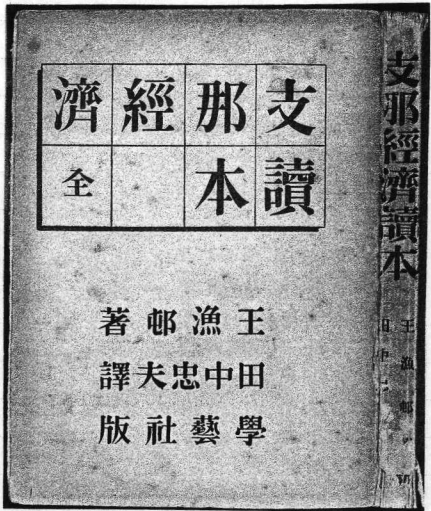 支那經濟
讀本 全
王漁邨著
田中忠夫譯
學藝社版
支那經濟讀本
王漁邨
田中